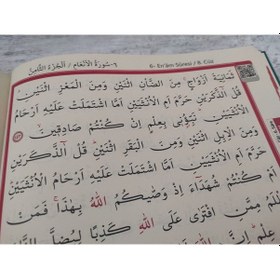 ٦- سُورَةُ الْأَنْعَامِ / اَلْجُزْءُ الثَّامِنُ
6- En'âm Sûresi / 8. Cüz
ثَمَانِيَةَ اَزْوَاجٍۚ مِنَ الضَّأْنِ اثْنَيْنِ وَمِنَ الْمَعْزِ اثْنَيْنِۜ
قُلْ آٰلذَّكَرَيْنِ حَرَّمَ اَمِ الْاُنْثَيَيْنِ اَمَّا اشْتَمَلَتْ عَلَيْهِ اَرْحَامُ
الْاُنْثَيَيْنِۜ نَبِّؤُ۫ن۪ي بِعِلْمٍ اِنْ كُنْتُمْ صَادِق۪ينَۙ
وَمِنَ الْاِبِلِ اثْنَيْنِ وَمِنَ الْبَقَرِ اثْنَيْنِۜ قُلْ آٰلذَّكَرَيْنِ
اَمِ الْاُنْثَيَيْنِ اَمَّا اشْتَمَلَتْ عَلَيْهِ اَرْحَامُ الْاُنْثَيَيْنِۜ
اَمْ كُنْتُمْ شُهَدَٓاءَ اِذْ وَصّٰيكُمُ اللّٰهُ بِهٰذَاۚ فَمَنْ
مِمَّنِ افْتَرٰى عَلَى اللّٰهِ كَذِبًا لِيُضِلَّ